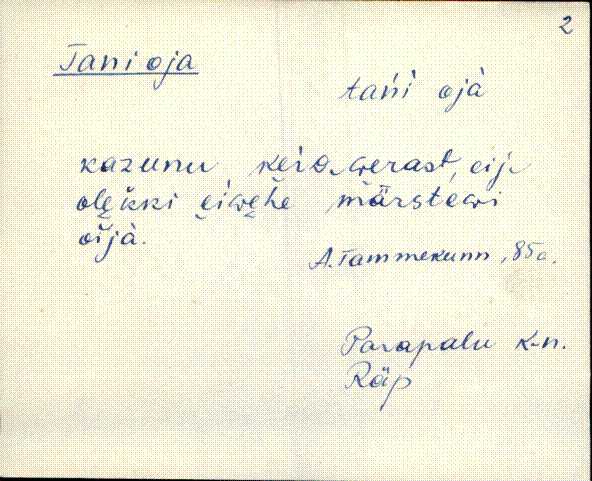 2
Tani oja
tańi ojà
kazunu, keiɢ werast, eij
olękki eiwęhe märstewi
oijà.
A. Tammekunn, 85 a.
Parapalu k-n.
Räp